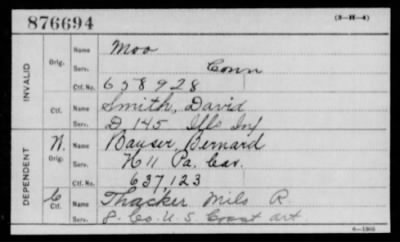 876694
(3—H—4)
INVALID
Orig. Name Moo
Serv. Conn
Ctf. No. 658928
Ctf. Name Smith, David
Serv. D, 145 Ills Inf
DEPENDENT
W. Orig. Name Bauser, Bernard
Serv. H 11 Pa. Cav.
Ctf. No. 637,123
C Ctf. Name Thacker Milo R.
Serv. 8. Co. U.S. Coast art
6—1360